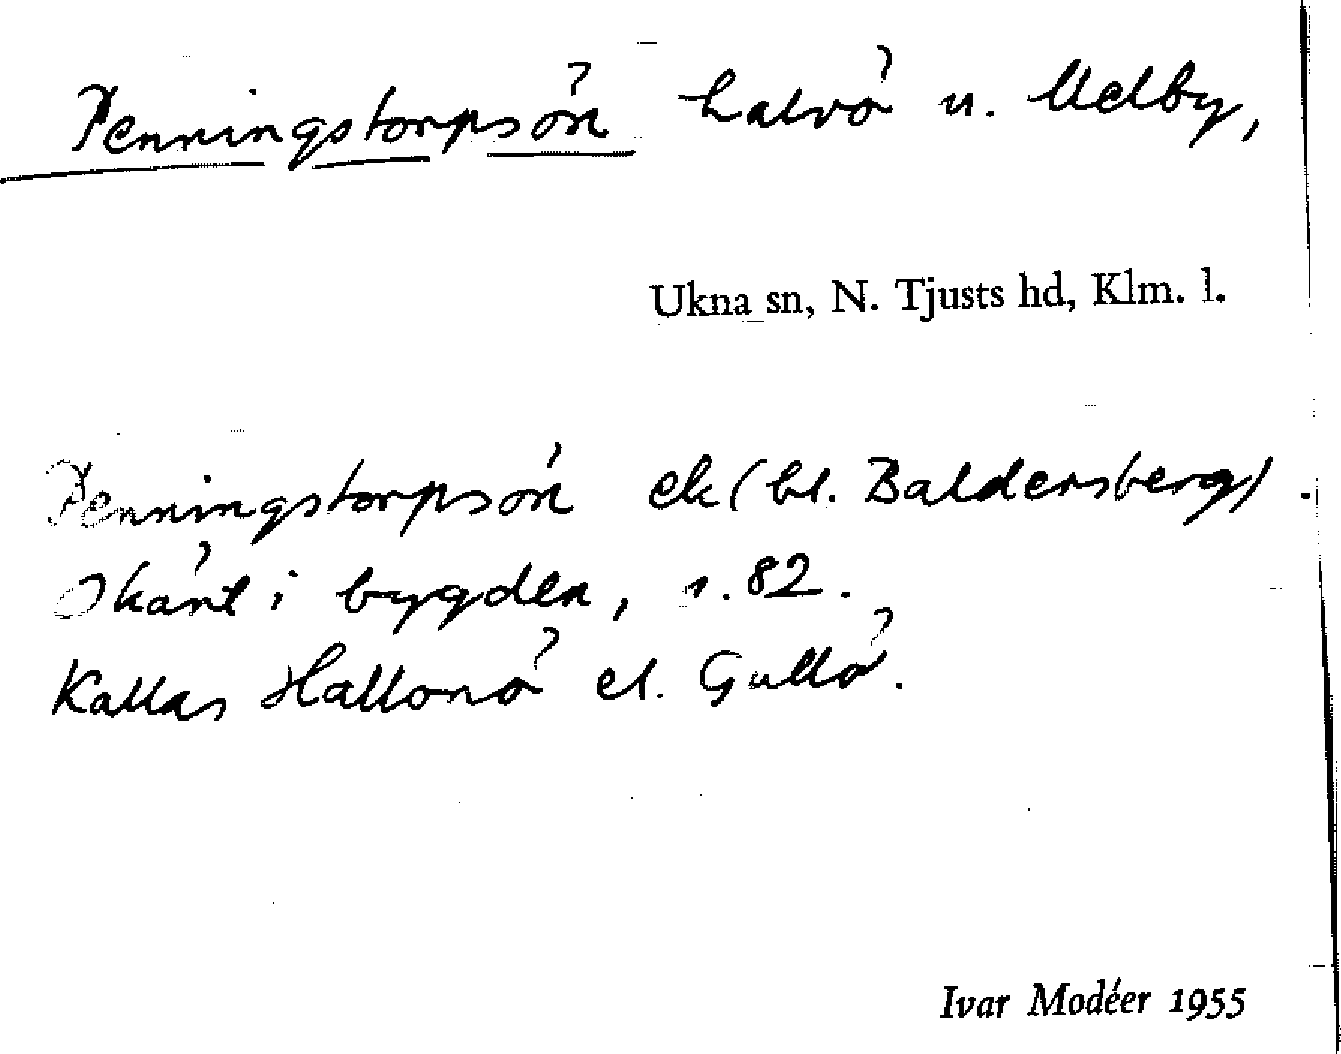 Penningstorpsön halvö u. Melby,
Ukna sn, N. Tjusts hd, Klm. l.
Penningstorpsön ek (bl. Baldersberg).
Okänt i bygden, s. 82.
Kallas Hallonö el. Gullö.
Ivar Modéer 1955